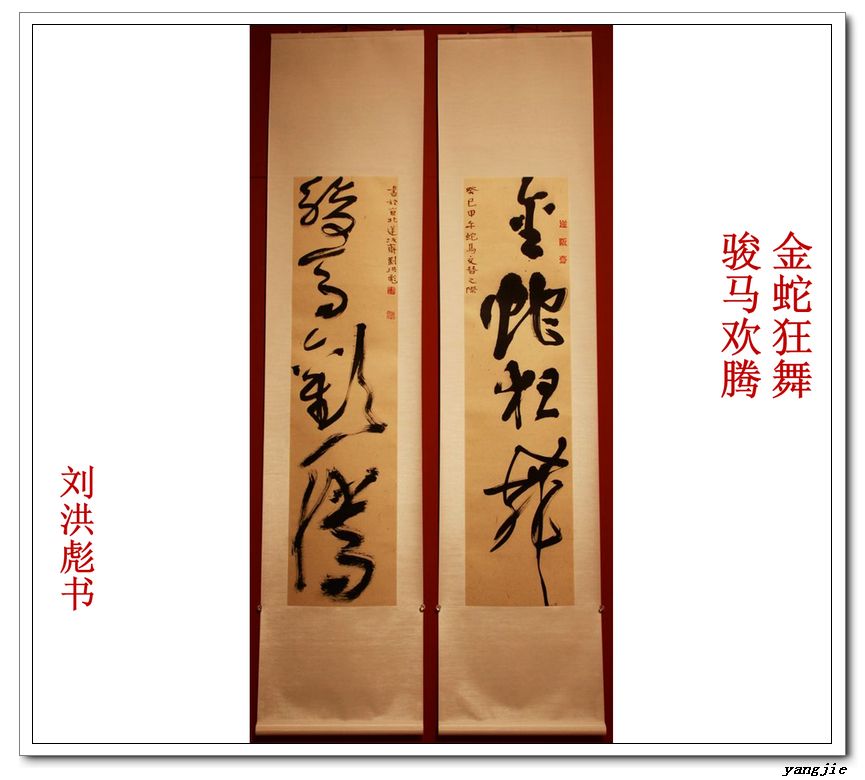 金蛇狂舞
骏马欢腾
金蛇狂舞
癸巳甲午蛇馬交替之際
駿馬歡騰
刘洪彪书
yangjie